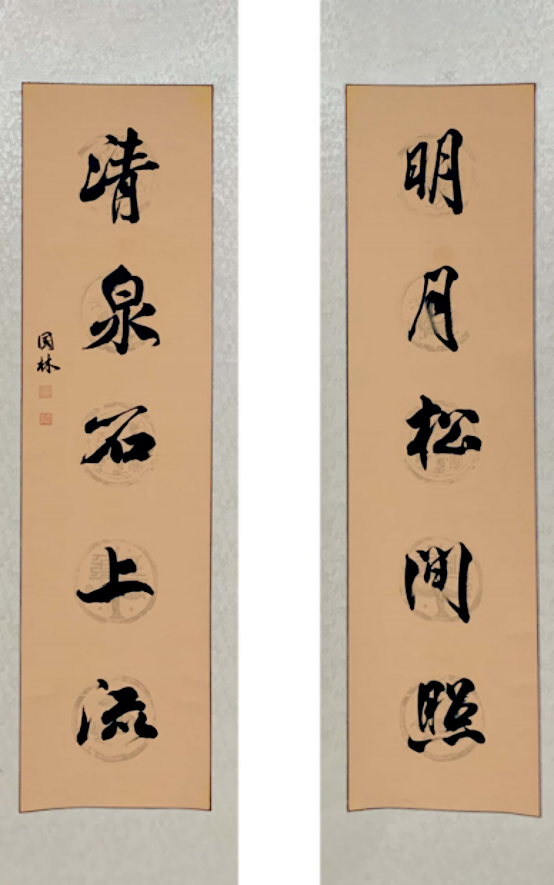 明月松間照
清泉石上流
国林